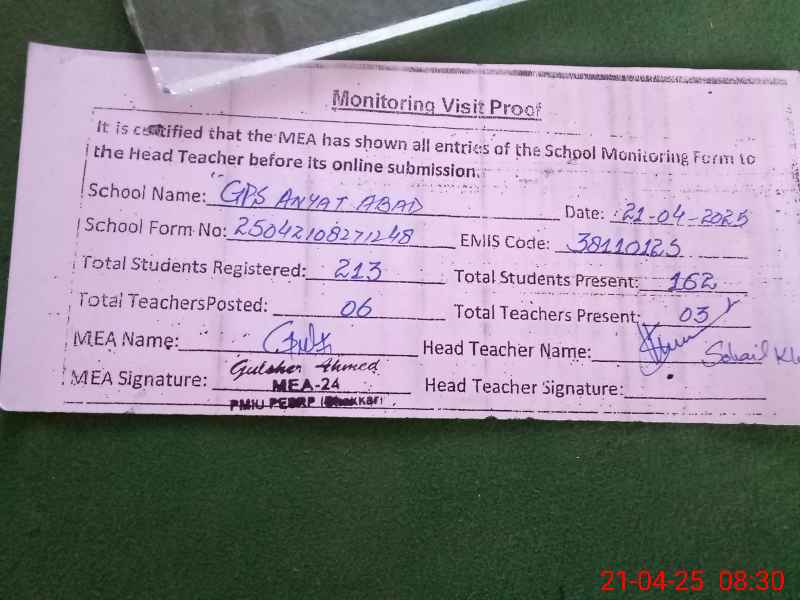 Monitoring Visit Proof
It is certified that the MEA has shown all entries of the School Monitoring Form to
the Head Teacher before its online submission.
School Name: GPS ANYAT ABAD Date: 21-04-2025
School Form No: 25042108271248 EMIS Code: 38110125
Total Students Registered: 213 Total Students Present: 162
Total TeachersPosted: 06 Total Teachers Present: 03
MEA Name: Head Teacher Name: Sohail
MEA Signature: Gulsher Ahmed Head Teacher Signature:
MEA-24
PMIU PESRP (Bhakkar)
21-04-25 08:30